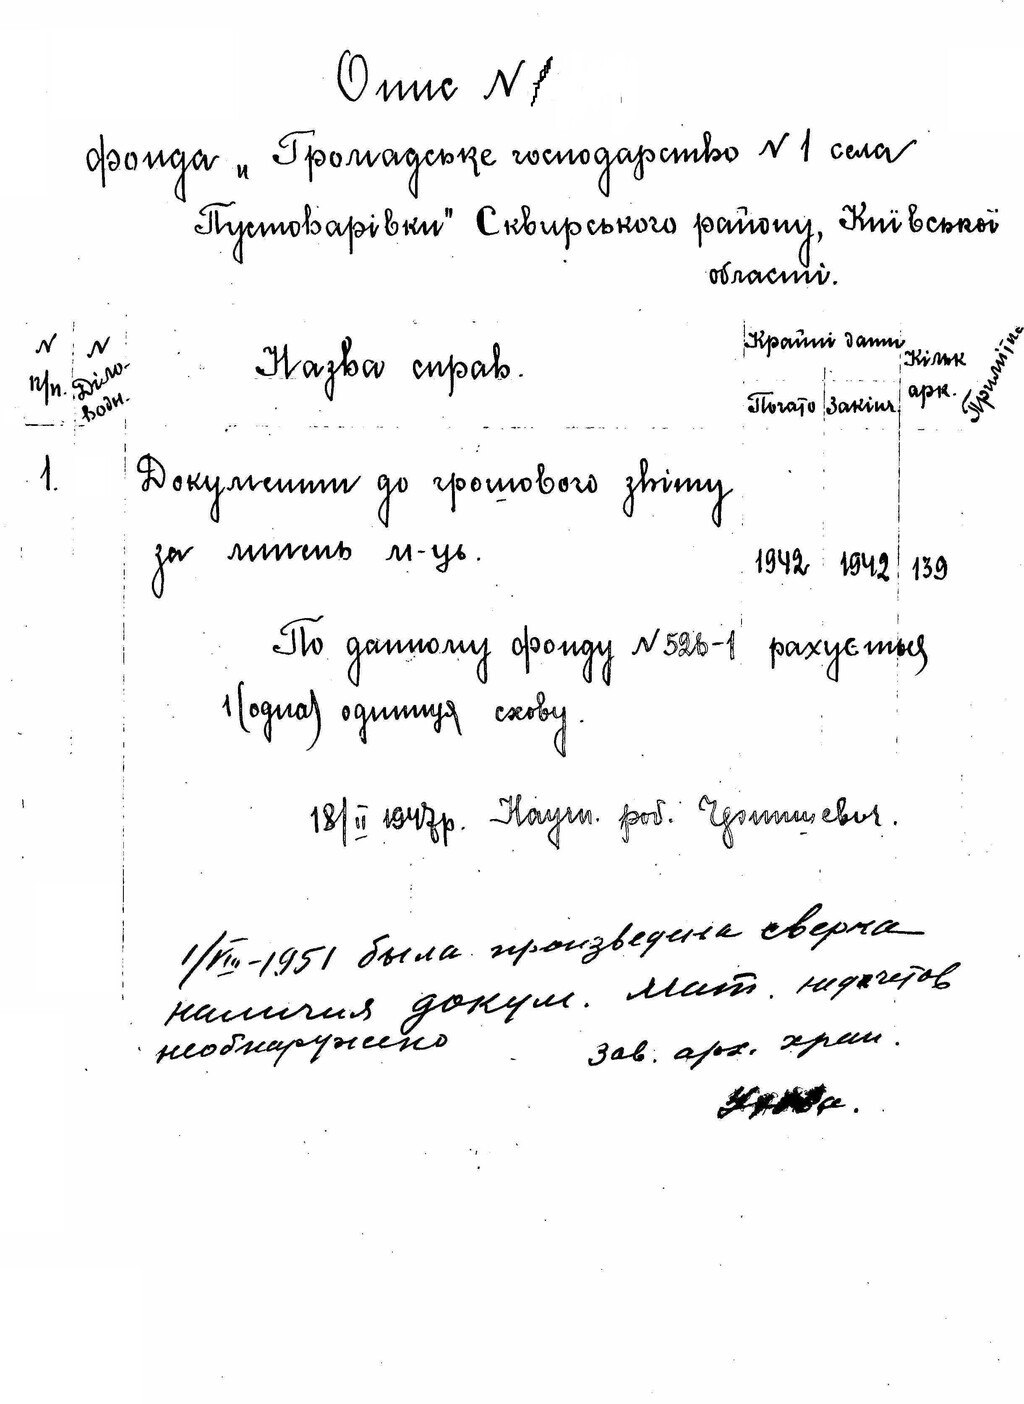 Опис N 1
фонда „Громадське господарство N 1 села
Пустоварівки" Сквирського району, Київської
області.
N п/п. N Діло-водн. Назва справ. Крайні дати Почато Закінч. Кільк арк. Примітка
1. Документи до грошового звіту
за липень м-ць. 1942 1942 139
По данному фонду N 526-1 рахується
1 (одна) одиниця схову.
18/II 1947р. Науч. роб.
1/VIII-1951 была произведена сверка
наличия докум. мат. недочетов
необнаружено Зав. арх. хран.